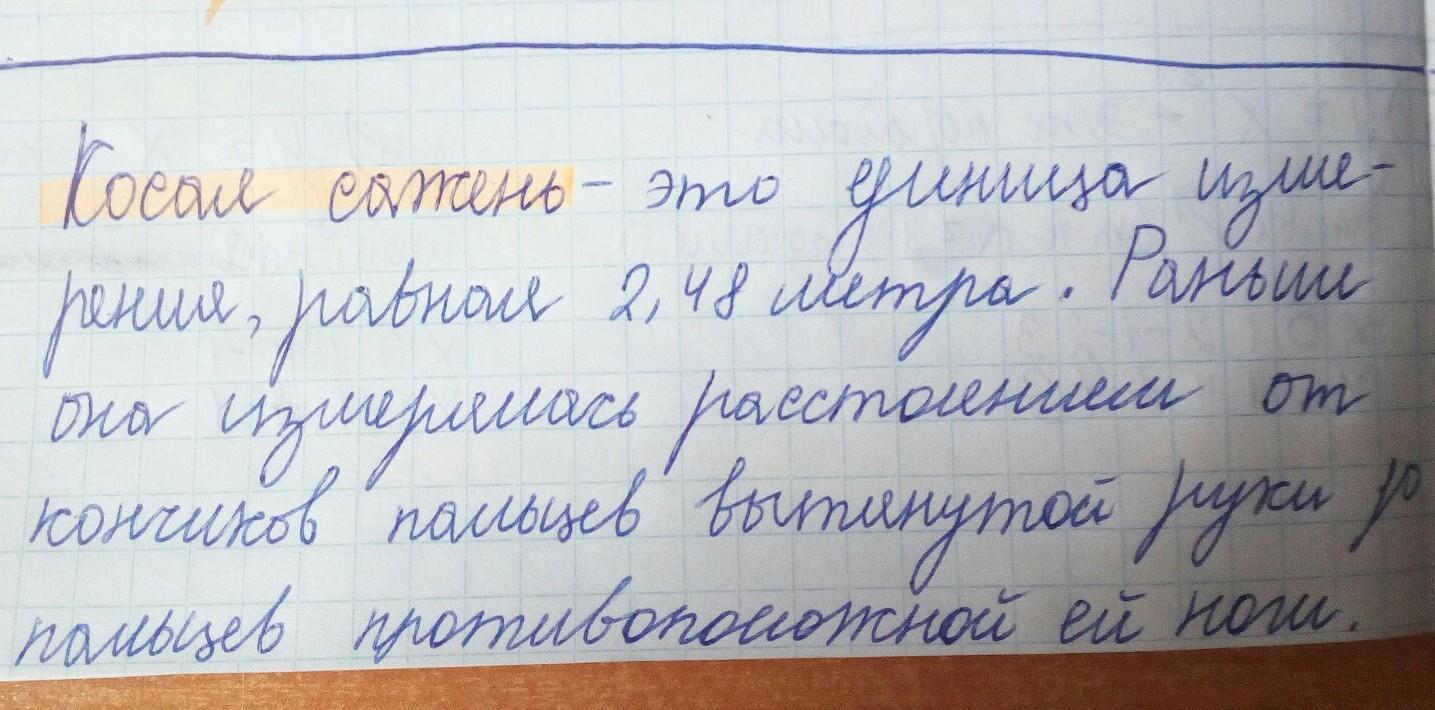 Косая сажень - это единица изме-
рения, равная 2,48 метра. Раньше
она измерялась расстоянием от
кончиков пальцев вытянутой руки до
пальцев противоположной ей ноги.